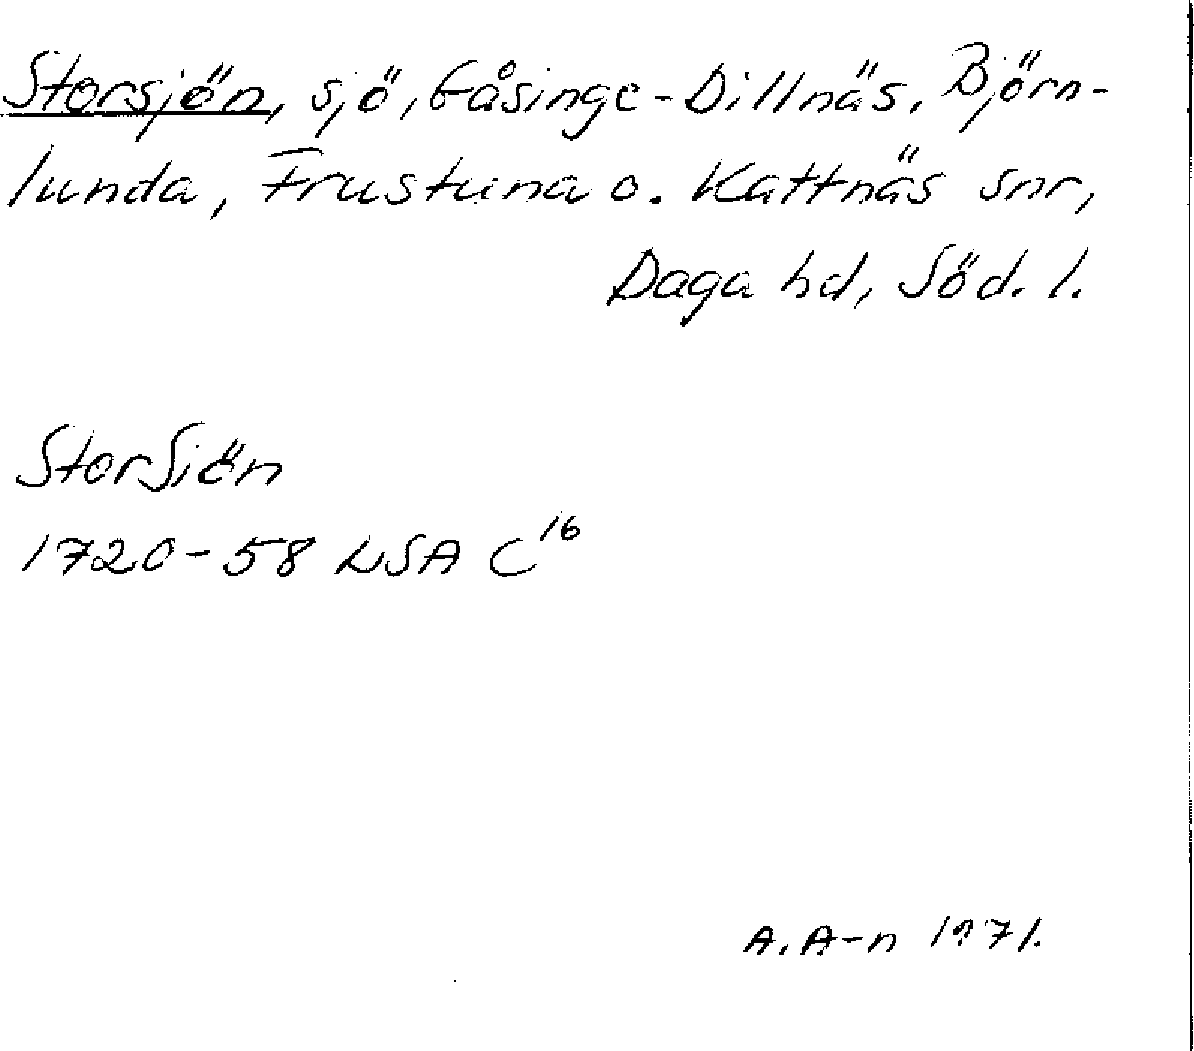 Storsjön, sjö, Gåsinge-Dillnäs, Björn-
lunda, Frustuna o. Kattnäs snr,
Daga hd, Söd. l.
StorSiön
1720-58 LSA C16
A. A-n 1971.